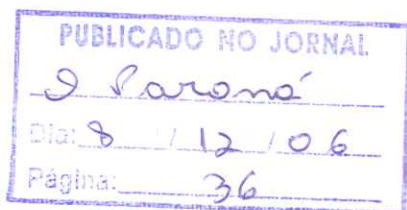 PUBLICADO NO JORNAL
O Paraná
Dia: 8 / 12 / 06
Página: 36